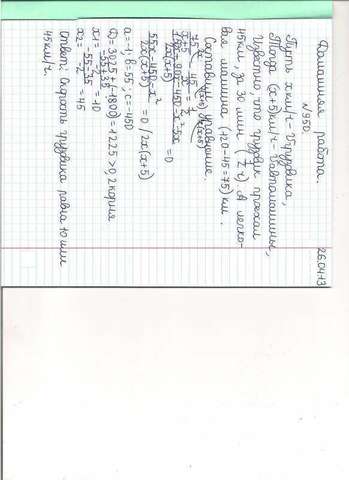 26.04.13
Домашняя работа.
N950.
Пусть x км/ч - Vгрузовика,
Тогда (x+5)км/ч - Vавтомашины,
Известно, что грузвик проехал
45 км, за 30 мин (1/2 ч). А легко-
вая машина (120-45=75) км.
Составим уравнение.
75/x+5 - 45/x = 1/2
150x-90x-450-x²-5x / 2x(x+5) = 0
55x-450-x² / 2x(x+5) = 0 / 2x(x+5)
a=-1; b=55; c=-450
D=3025+(-1800)=1225>0, 2 корня
x1= -55+35 / -2 = 10
x2= -55-35 / -2 = 45
Ответ: Скорость грузовика равна 10 или
45 км/ч.